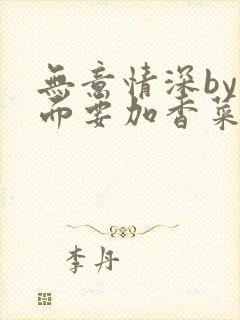 無意情深by
而要加香菜
李丹